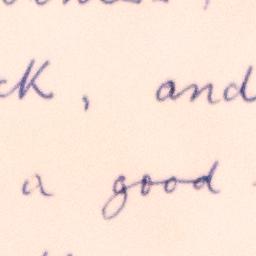 ck, and
a good